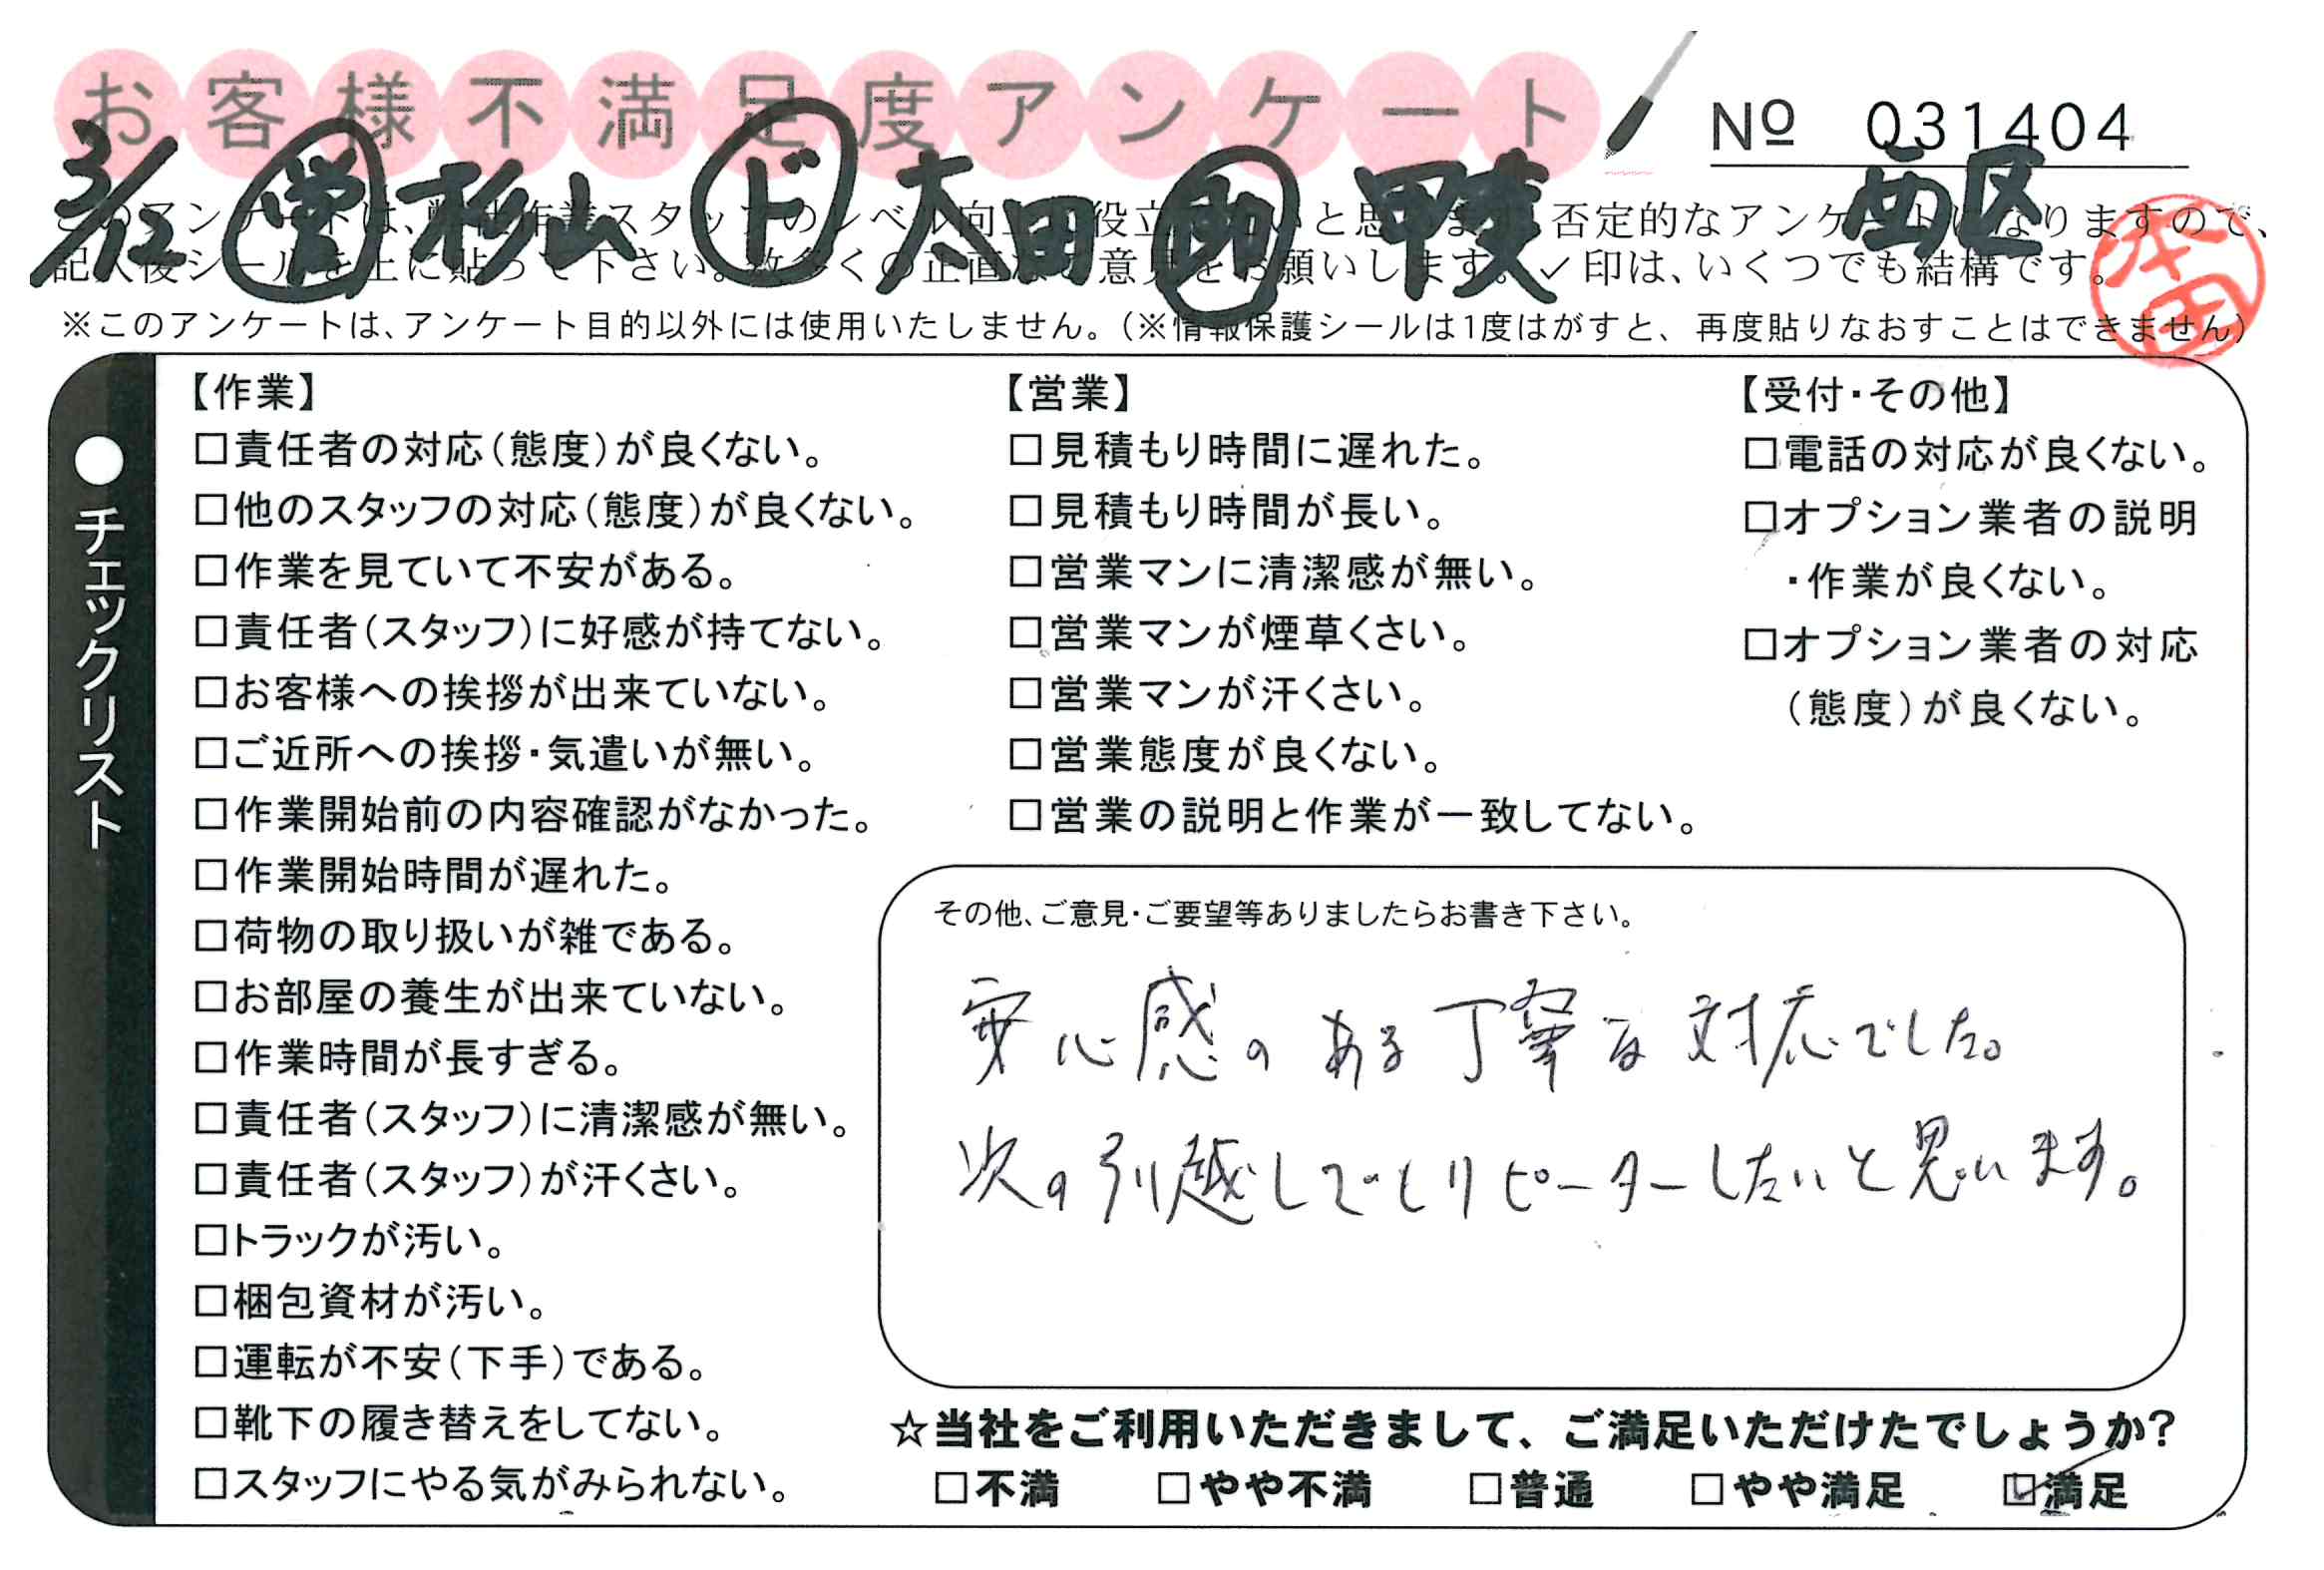 お客様不満足度アンケート
№ 031404
3/12 営 杉山 ド 太田 助 甲斐 西区
このアンケートは、弊社作業スタッフのレベル向上に役立てたいと思います。否定的なアンケートになりますので、
記入後シールを上に貼って下さい。数多くの正直なご意見をお願いします。✓印は、いくつでも結構です。
本田
※このアンケートは、アンケート目的以外には使用いたしません。（※情報保護シールは1度はがすと、再度貼りなおすことはできません）
●チェックリスト
【作業】
□責任者の対応（態度）が良くない。
□他のスタッフの対応（態度）が良くない。
□作業を見ていて不安がある。
□責任者（スタッフ）に好感が持てない。
□お客様への挨拶が出来ていない。
□ご近所への挨拶・気遣いが無い。
□作業開始前の内容確認がなかった。
□作業開始時間が遅れた。
□荷物の取り扱いが雑である。
□お部屋の養生が出来ていない。
□作業時間が長すぎる。
□責任者（スタッフ）に清潔感が無い。
□責任者（スタッフ）が汗くさい。
□トラックが汚い。
□梱包資材が汚い。
□運転が不安（下手）である。
□靴下の履き替えをしてない。
□スタッフにやる気がみられない。
【営業】
□見積もり時間に遅れた。
□見積もり時間が長い。
□営業マンに清潔感が無い。
□営業マンが煙草くさい。
□営業マンが汗くさい。
□営業態度が良くない。
□営業の説明と作業が一致してない。
【受付・その他】
□電話の対応が良くない。
□オプション業者の説明
・作業が良くない。
□オプション業者の対応
（態度）が良くない。
その他、ご意見・ご要望等ありましたらお書き下さい。
安心感のある丁寧な対応でした。
次の引越しでもリピーターしたいと思います。
☆当社をご利用いただきまして、ご満足いただけたでしょうか?
□不満 □やや不満 □普通 □やや満足 ☑満足